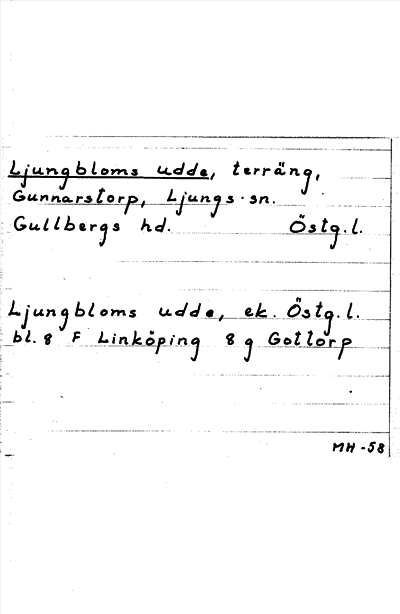 Ljungbloms udde, terräng,
Gunnarstorp, Ljungs sn.
Gullbergs hd. Östg.l.
Ljungbloms udde, ek. Östg.l.
bl. 8 F Linköping 8 g Gottorp
MH-58